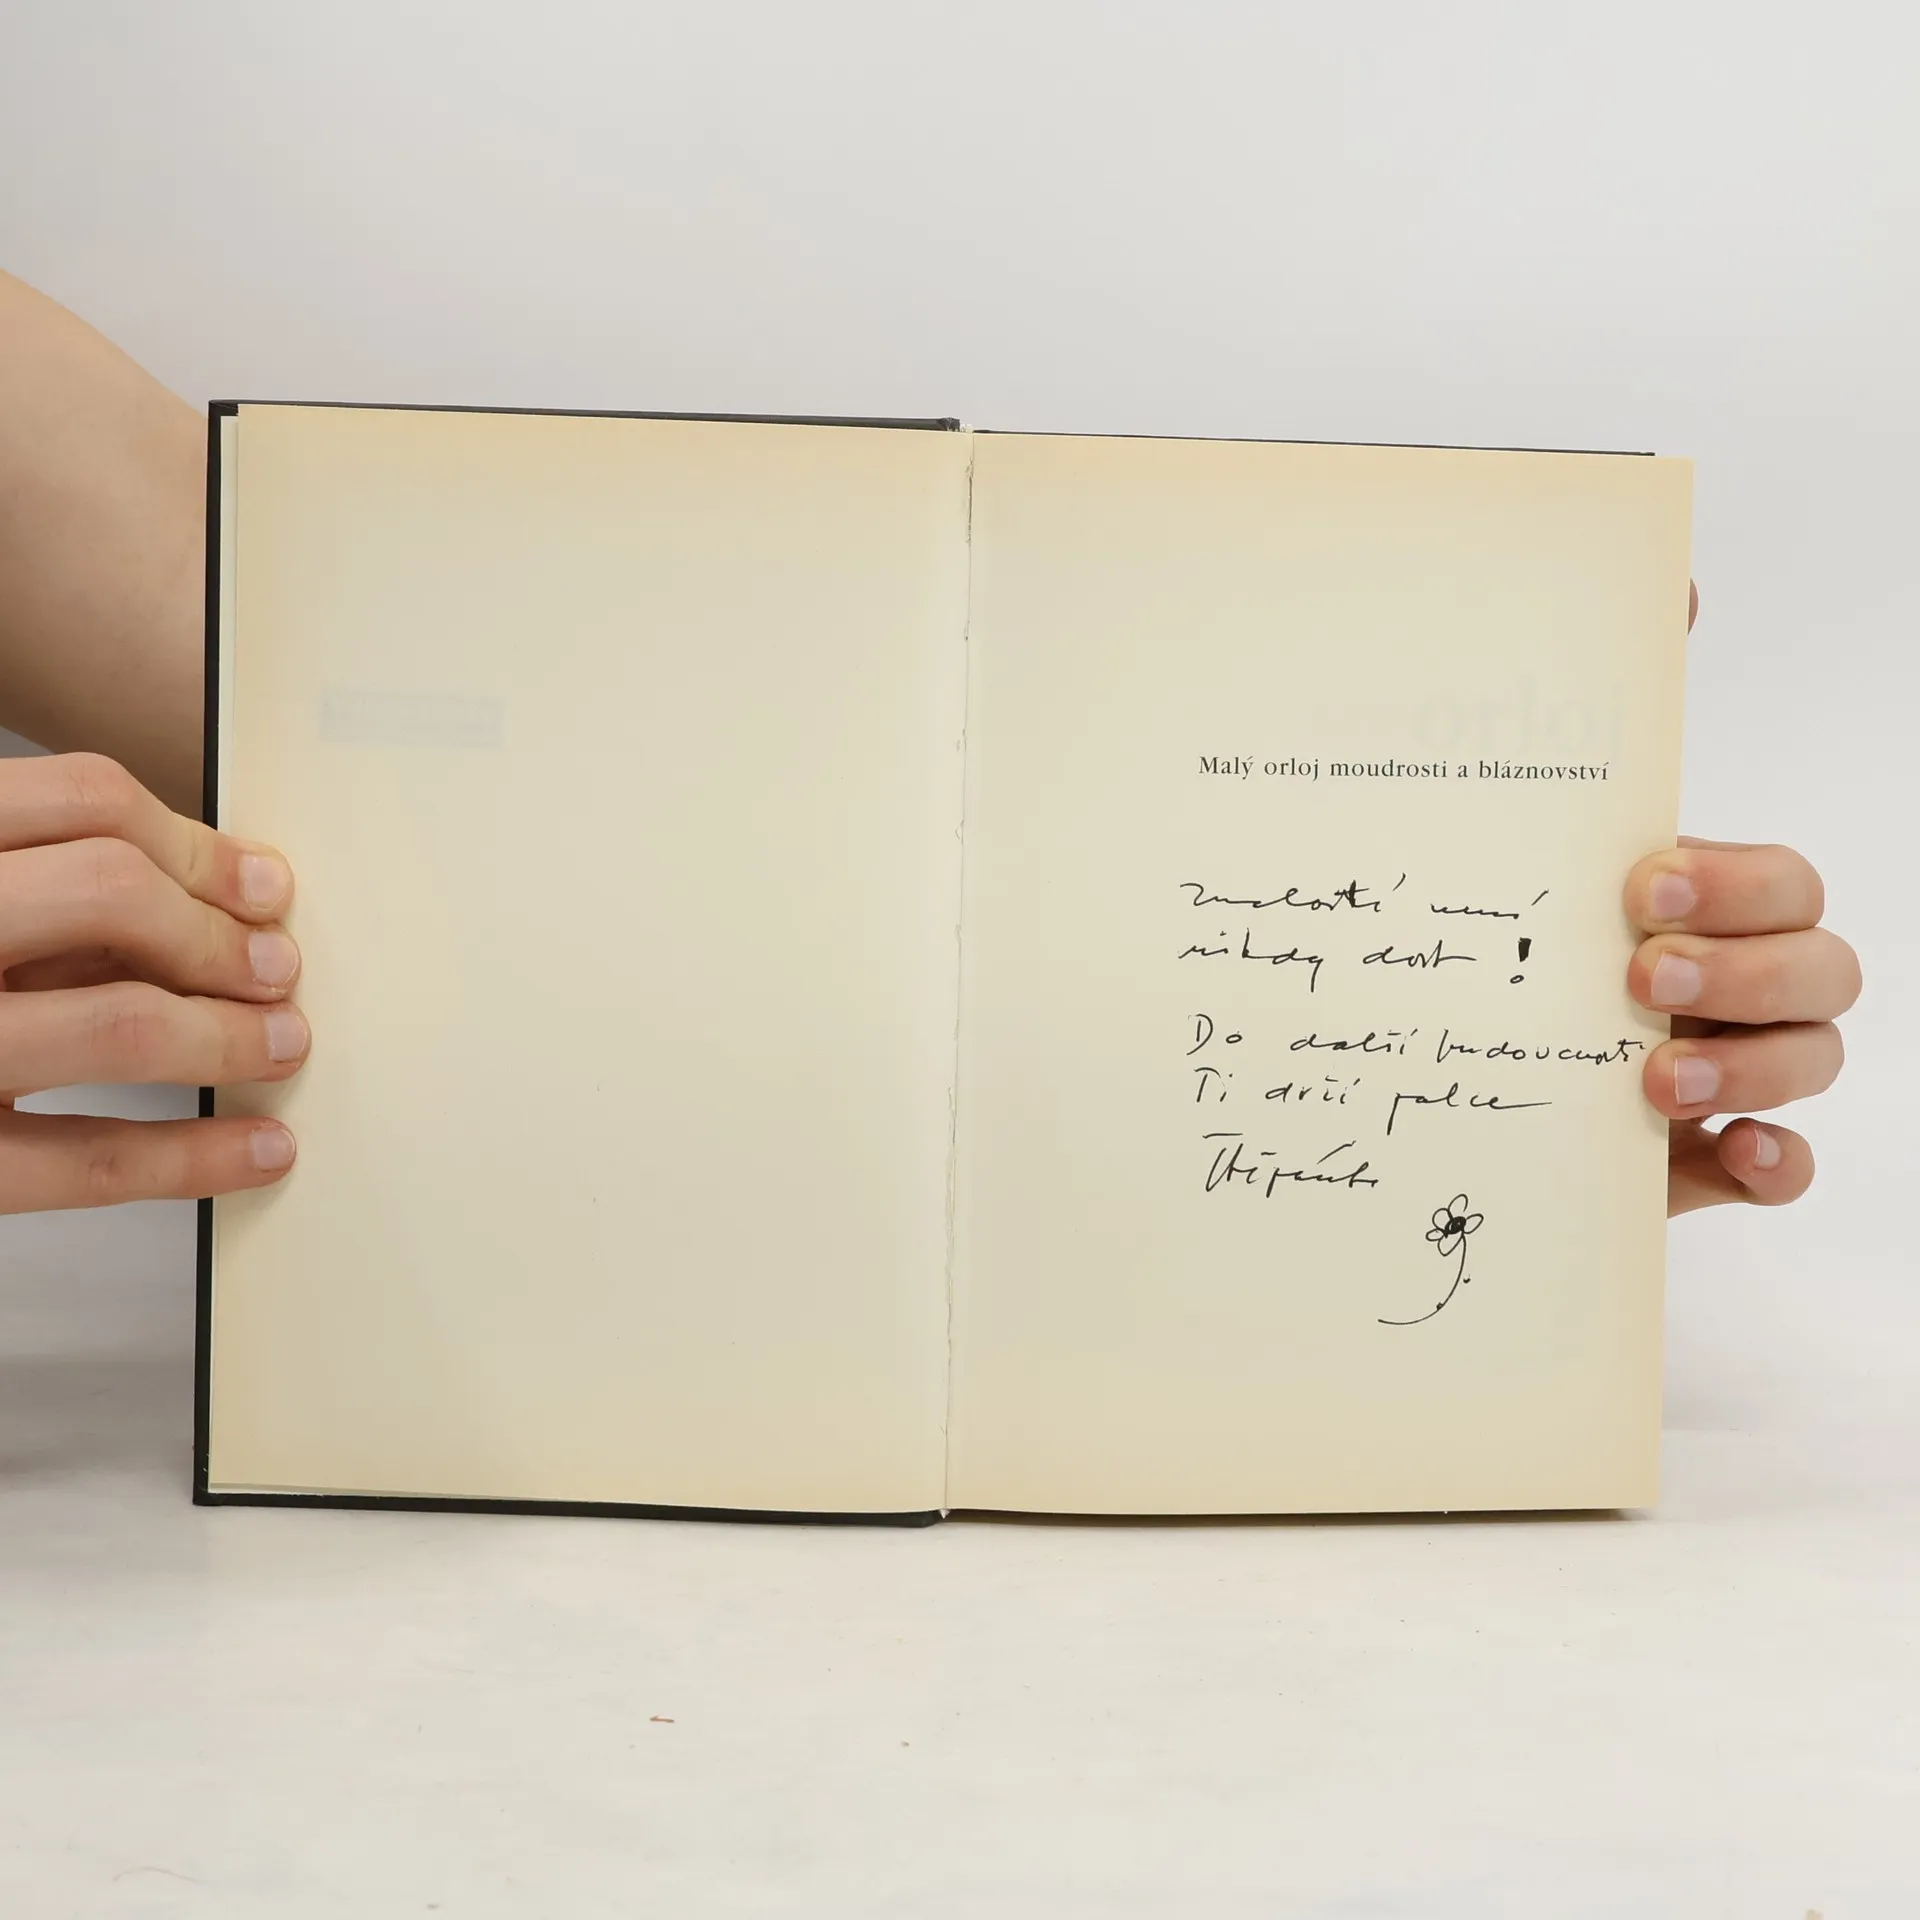 Malý orloj moudrosti a bláznovství
znalostí není
nikdy dost!
Do další budoucnosti
Ti drží palce
Štěpánka